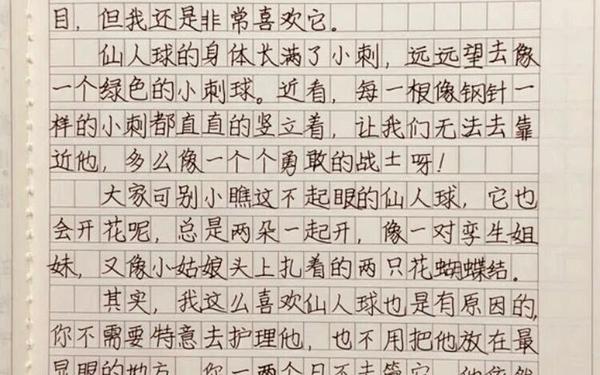 目，但我还是非常喜欢它。
仙人球的身体长满了小刺，远远望去像
一个绿色的小刺球。近看，每一根像钢针一
样的小刺都直直的竖立着，让我们无法去靠
近他，多么像一个个勇敢的战士呀！
大家可别小瞧这不起眼的仙人球，它也
会开花呢，总是两朵一起开，像一对孪生姐
妹，又像小姑娘头上扎着的两只花蝴蝶结。
其实，我这么喜欢仙人球也是有原因的，
你不需要特意去护理他，也不用把他放在最
显眼的地方，你一两个月不去管它，他依然